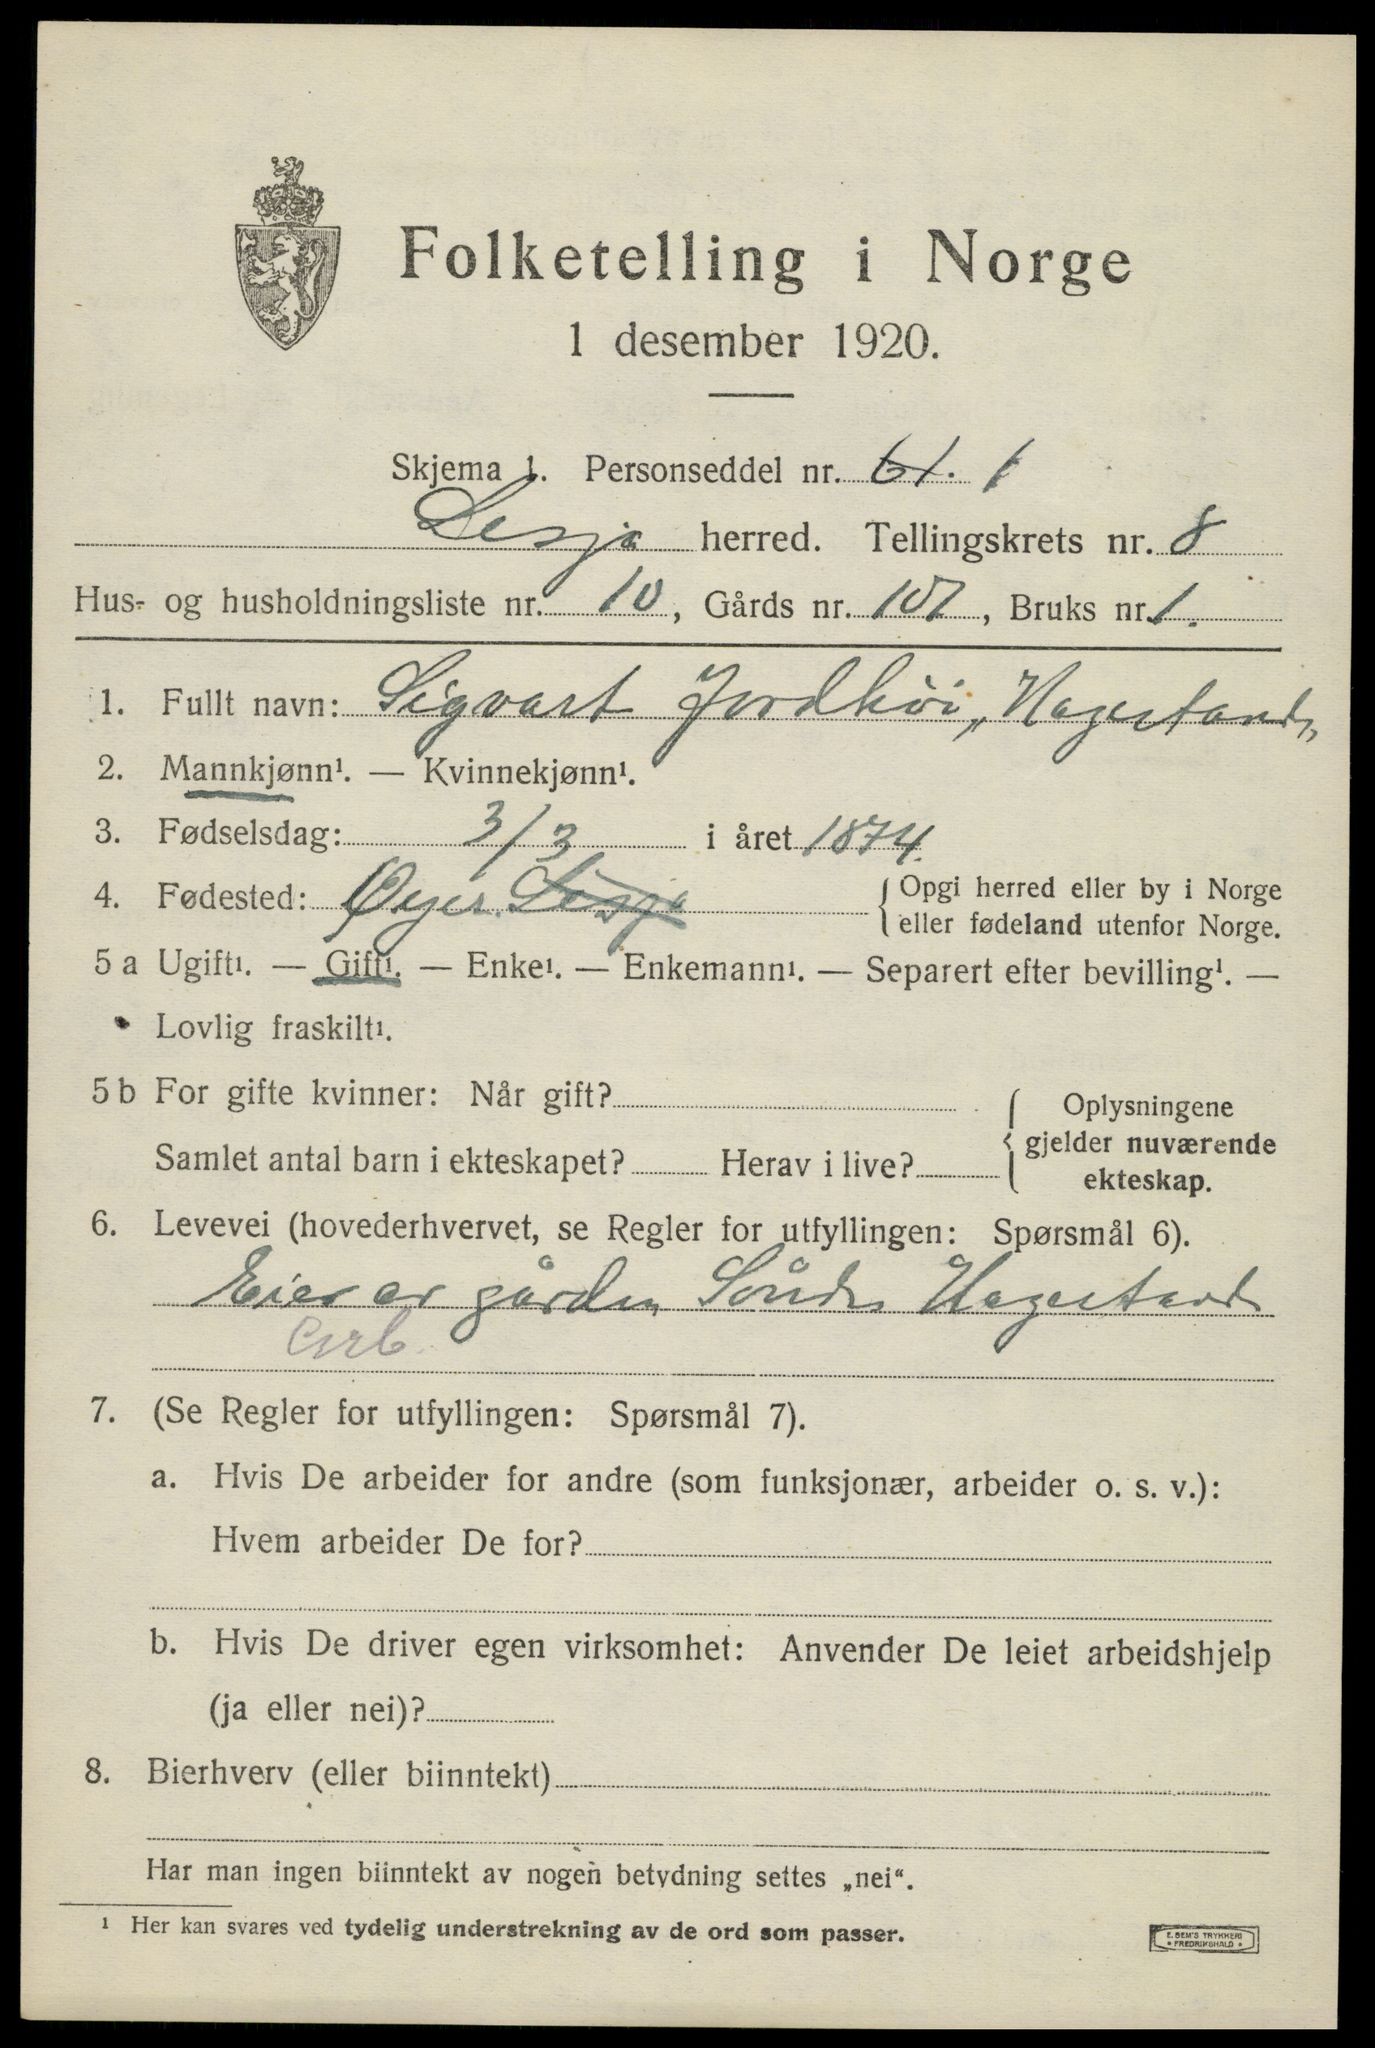 Folketelling i Norge
1 desember 1920.
Skjema 1. Personseddel nr. 61. 1
Lesja herred. Tellingskrets nr. 8
Hus- og husholdningsliste nr. 10, Gårds nr. 107, Bruks nr. 1.
1. Fullt navn: Sigvart Jordhöi „Hagestand„
2. Mannkjønn¹. — Kvinnekjønn¹.
3. Fødselsdag: 3/3 i året 1874.
4. Fødested: Øyer. Lesja { Opgi herred eller by i Norge
eller fødeland utenfor Norge.
5 a Ugift¹. — Gift¹. — Enke¹. — Enkemann¹. — Separert efter bevilling¹. —
Lovlig fraskilt¹.
5 b For gifte kvinner: Når gift? { Oplysningene
gjelder nuværende
Samlet antal barn i ekteskapet? Herav i live?
ekteskap.
6. Levevei (hovederhvervet, se Regler for utfyllingen: Spørsmål 6).
Eier av gården Søndre Hagestand
7. (Se Regler for utfyllingen: Spørsmål 7).
a. Hvis De arbeider for andre (som funksjonær, arbeider o. s. v.):
Hvem arbeider De for?
b. Hvis De driver egen virksomhet: Anvender De leiet arbeidshjelp
(ja eller nei)?
8. Bierhverv (eller biinntekt)
Har man ingen biinntekt av nogen betydning settes „nei“.
¹ Her kan svares ved tydelig understrekning av de ord som passer.
E. SEM'S TRYKKERI
• FREDRIKSHALD •